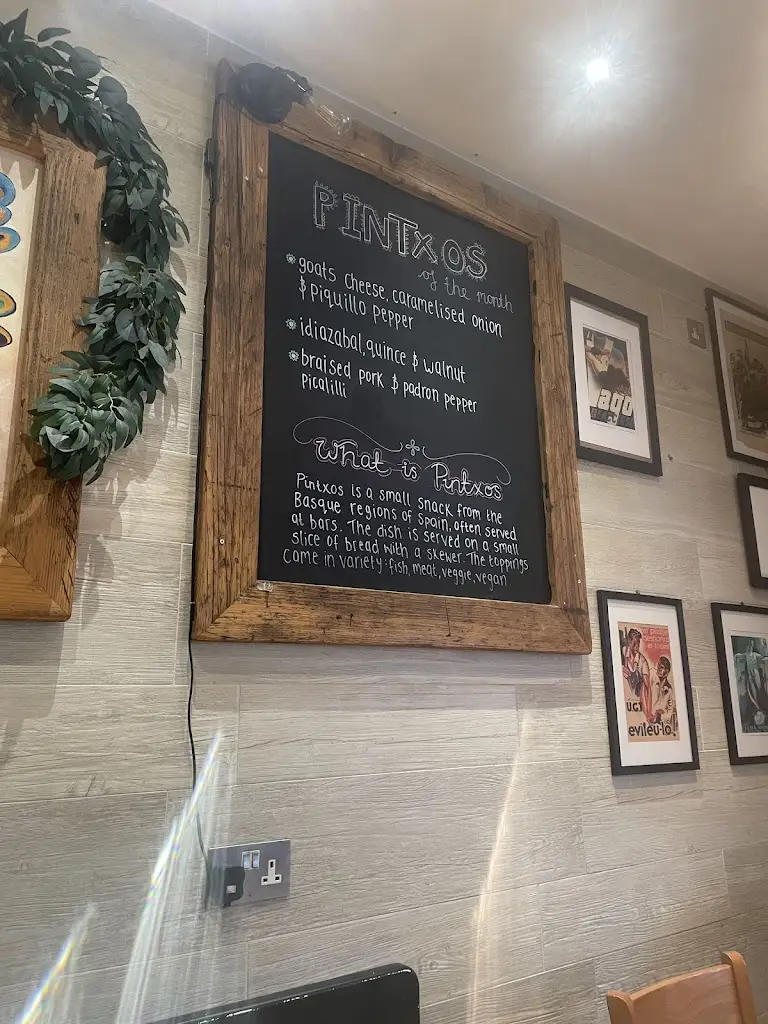 PINTXOS
of the month
goats cheese, caramelised onion
& Piquillo pepper
idiazabal, quince & walnut
braised pork & padron pepper
Picalilli
What is Pintxos
Pintxos is a small snack from the
Basque regions of Spain, often served
at bars. The dish is served on a small
slice of bread with a skewer. The toppings
come in variety: fish, meat, veggie, vegan
U.G.T.
eviteu-lo!